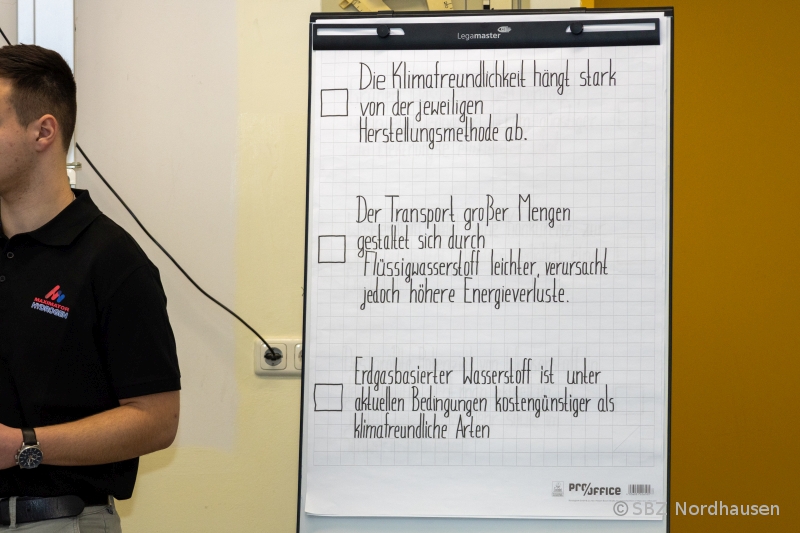 Legamaster
Die Klimafreundlichkeit hängt stark
von der jeweiligen
Herstellungsmethode ab.
Der Transport großer Mengen
gestaltet sich durch
Flüssigwasserstoff leichter, verursacht
jedoch höhere Energieverluste.
Erdgasbasierter Wasserstoff ist unter
aktuellen Bedingungen kostengünstiger als
klimafreundliche Arten
MAXIMATOR
HYDROGEN
PRO/OFFICE
© SBZ Nordhausen